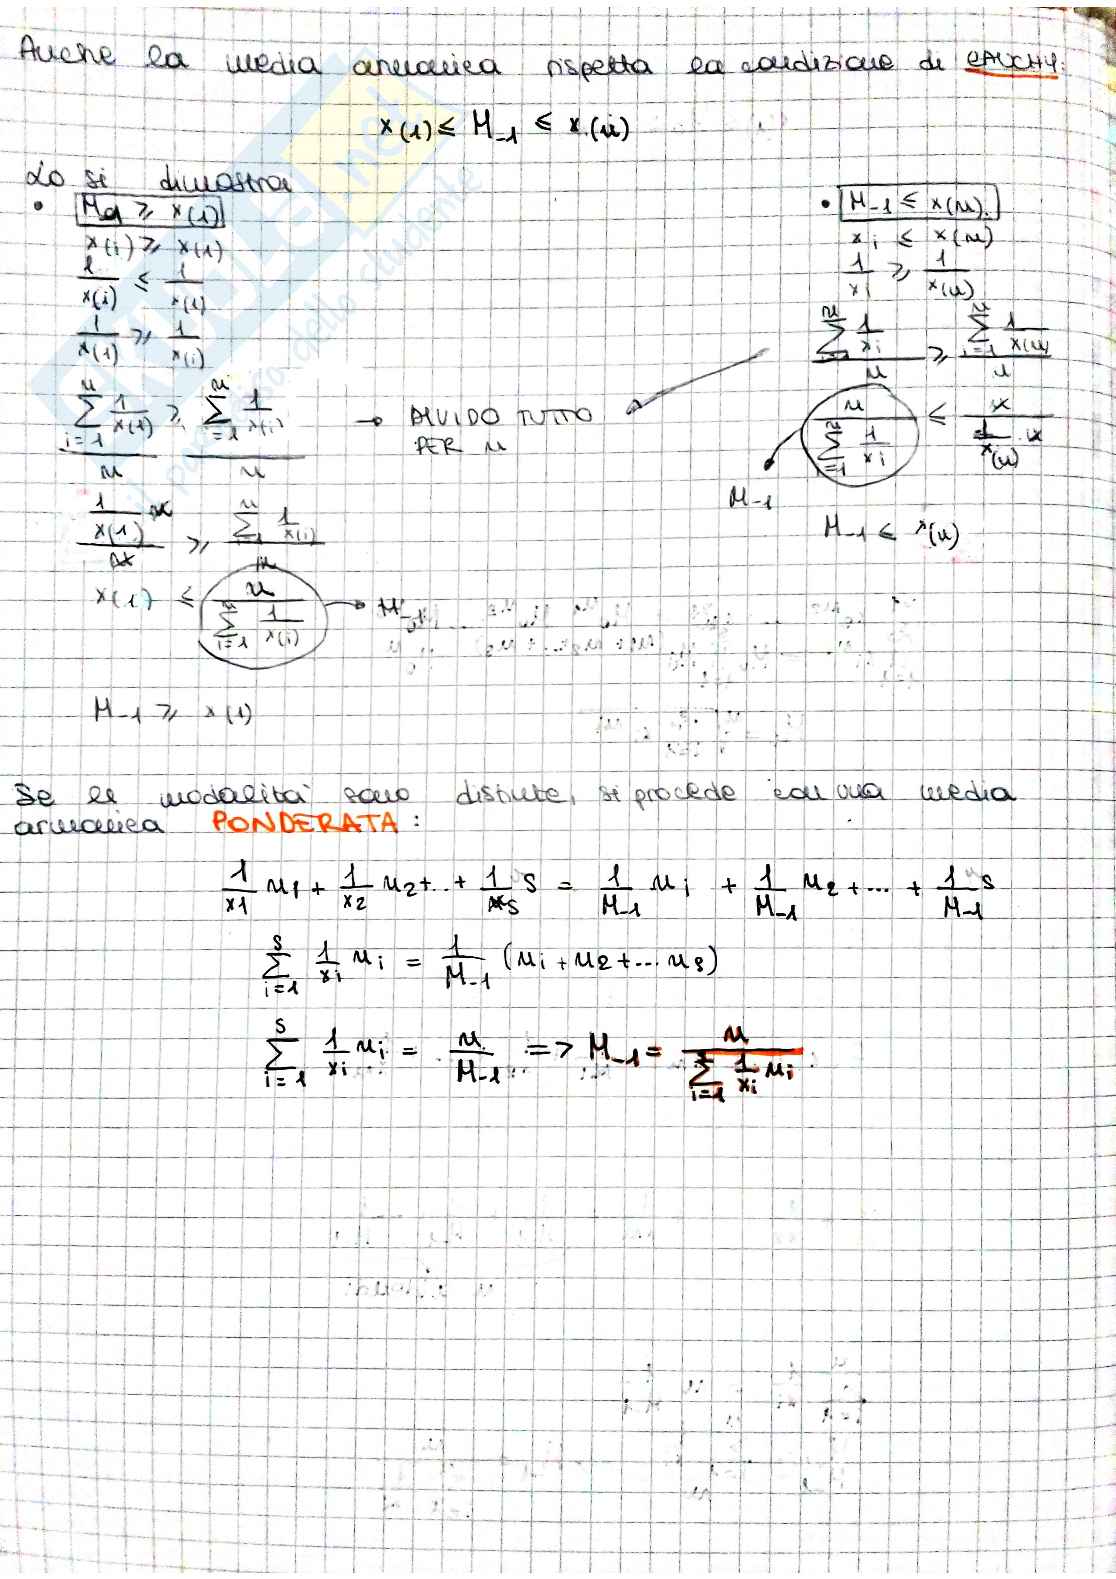 Anche la media armonica rispetta la condizione di CAUCHY:
x(1) ≤ M₋₁ ≤ x(n)
Lo si dimostra
• M₋₁ ≥ x(1)
x(i) ≥ x(1)
1/x(i) ≤ 1/x(1)
1/x(1) ≥ 1/x(i)
(∑ i=1 n 1/x(1))/n ≥ (∑ i=1 n 1/x(i))/n → DIVIDO TUTTO
PER n
(1/x(1) · n)/n ≥ (∑ i=1 n 1/x(i))/n
x(1) ≤ n/(∑ i=1 n 1/x(i)) → M₋₁
M₋₁ ≥ x(1)
• M₋₁ ≤ x(n).
xi ≤ x(n)
1/xi ≥ 1/x(n)
(∑ i=1 n 1/xi)/n ≥ (∑ i=1 n 1/x(n))/n
n/(∑ i=1 n 1/xi) ≤ n/(1/x(n) · n)
M₋₁
M₋₁ ≤ x(n)
Se le modalità sono distinte, si procede con una media
armonica PONDERATA :
1/x1 n1 + 1/x2 n2 +..+ 1/xs s = 1/M₋₁ ni + 1/M₋₁ n2 +...+ 1/M₋₁ s
∑ i=1 s 1/xi ni = 1/M₋₁ (ni + n2 +... ns)
∑ i=1 s 1/xi ni = n/M₋₁ => M₋₁ = n/(∑ i=1 s 1/xi ni)